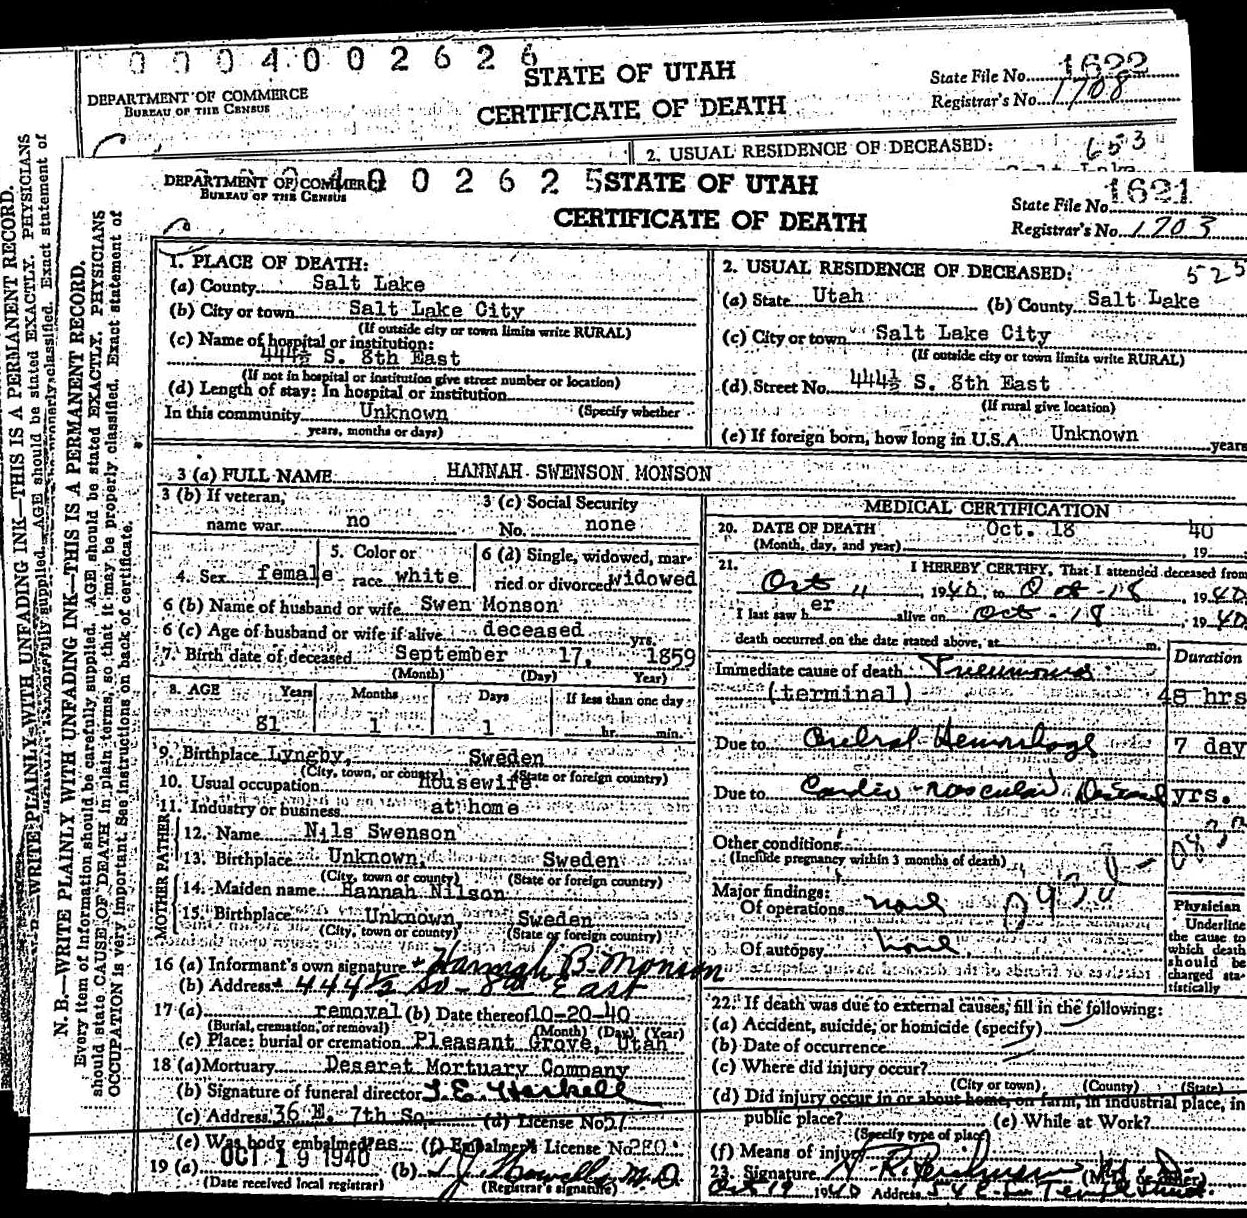 0004002626
STATE OF UTAH
CERTIFICATE OF DEATH
DEPARTMENT OF COMMERCE
BUREAU OF THE CENSUS
State File No. 1622
Registrar's No. 1708
2. USUAL RESIDENCE OF DECEASED: 653
Salt Lake
N. B.—WRITE PLAINLY WITH UNFADING INK—THIS IS A PERMANENT RECORD.
Every item of information should be carefully supplied. AGE should be stated EXACTLY. PHYSICIANS
should state CAUSE OF DEATH in plain terms, so that it may be properly classified. Exact statement of
OCCUPATION is very important. See instructions on back of certificate.
DEPARTMENT OF COMMERCE
BUREAU OF THE CENSUS
4002625
STATE OF UTAH
CERTIFICATE OF DEATH
State File No. 1621
Registrar's No. 1703
1. PLACE OF DEATH:
(a) County Salt Lake
(b) City or town Salt Lake City
(If outside city or town limits write RURAL)
(c) Name of hospital or institution:
444½ S. 8th East
(If not in hospital or institution give street number or location)
(d) Length of stay: In hospital or institution
In this community Unknown (Specify whether
years, months or days)
2. USUAL RESIDENCE OF DECEASED: 525
(a) State Utah (b) County Salt Lake
(c) City or town Salt Lake City
(If outside city or town limits write RURAL)
(d) Street No. 444½ S. 8th East
(If rural give location)
(e) If foreign born, how long in U.S.A. Unknown years
3 (a) FULL NAME HANNAH SWENSON MONSON
3 (b) If veteran,
name war no
3 (c) Social Security
No. none
4. Sex female
5. Color or
race white
6 (d) Single, widowed, mar-
ried or divorced widowed
6 (b) Name of husband or wife Swen Monson
6 (c) Age of husband or wife if alive deceased yrs.
7. Birth date of deceased September 17, 1859
(Month) (Day) Year)
8. AGE Years Months Days If less than one day
81 1 1 hr. min.
9. Birthplace Lyngby, Sweden
(City, town, or county) (State or foreign country)
10. Usual occupation Housewife
11. Industry or business at home
FATHER
12. Name Nils Swenson
13. Birthplace Unknown, Sweden
(City, town or county) (State or foreign country)
MOTHER
14. Maiden name Hannah Nilson
15. Birthplace Unknown, Sweden
(City, town or county) (State or foreign country)
16 (a) Informant's own signature Hannah B. Monson
(b) Address 444½ So - 8th East
17 (a) removal (b) Date thereof 10-20-40
(Burial, cremation, or removal) (Month) (Day) (Year)
(c) Place: burial or cremation Pleasant Grove, Utah
18 (a) Mortuary Deseret Mortuary Company
(b) Signature of funeral director
(c) Address 36 E. 7th So. (d) License No.
(e) Was body embalmed yes (f) Embalmer's License No. 280
19 (a) OCT 19 1940 (b) M.D.
(Date received local registrar) (Registrar's signature)
MEDICAL CERTIFICATION
20. DATE OF DEATH Oct. 18 40
(Month, day, and year) , 19
21. I HEREBY CERTIFY, That I attended deceased from
Oct 11, 1940, to Oct - 18, 1940
I last saw her alive on Oct - 18, 1940
death occurred on the date stated above, at m.
Duration
Immediate cause of death Pneumonia
(terminal) 48 hrs
Due to Cerebral Hemorrhage 7 day
Due to Cardio-vascular Disease yrs.
Other conditions
(Include pregnancy within 3 months of death)
Major findings:
Of operations none
Of autopsy none
Physician
Underline
the cause to
which death
should be
charged sta-
tistically
22. If death was due to external causes, fill in the following:
(a) Accident, suicide, or homicide (specify)
(b) Date of occurrence
(c) Where did injury occur?
(City or town) (County) (State)
(d) Did injury occur in or about home, on farm, in industrial place, in
public place? (e) While at Work?
(Specify type of place)
(f) Means of injury
23. Signature (M. D. or other)
Oct 19 1940 Address 54 E. So Temple Street